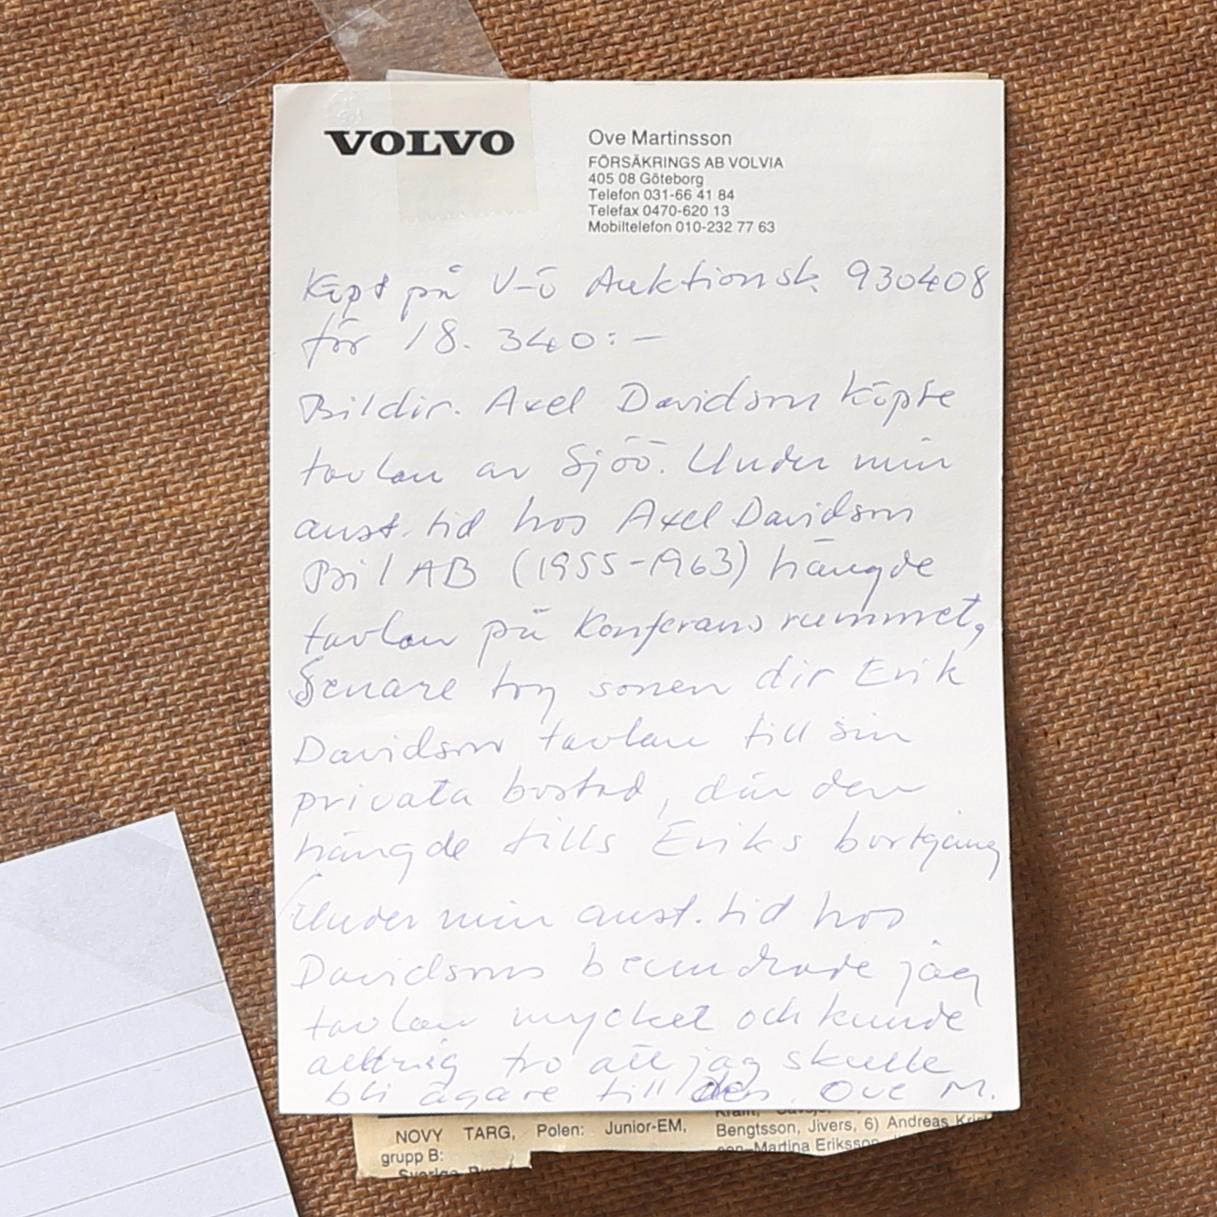 VOLVO
Ove Martinsson
FÖRSÄKRINGS AB VOLVIA
405 08 Göteborg
Telefon 031-66 41 84
Telefax 0470-620 13
Mobiltelefon 010-232 77 63
Köpt på V-ö Auktionsk. 930408
för 18.340:-
Bildir. Axel Davidson köpte
tavlan av Sjöö. Under min
anst. tid hos Axel Davidson
Bil AB (1955-1963) hängde
tavlan på Konferensrummet,
Senare tog sonen dir Erik
Davidson tavlan till sin
privata bostad, där den
hängde tills Eriks bortgång
Under min anst. tid hos
Davidsons beundrade jag
tavlan mycket och kunde
aldrig tro att jag skulle
bli ägare till den. Ove M.
NOVY TARG, Polen: Junior-EM,
grupp B:
Bengtsson, Jivers, 6) Andreas
Martina Eriksson